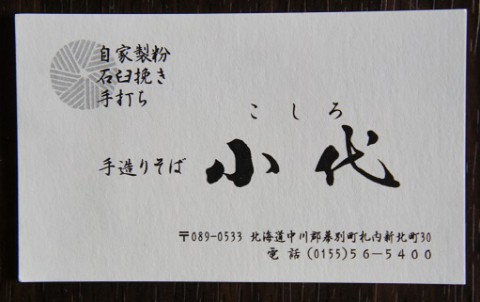 自家製粉
石臼挽き
手打ち
こしろ
手造りそば 小代
〒089-0533 北海道中川郡幕別町札内新北町30
電話(0155)56-5400